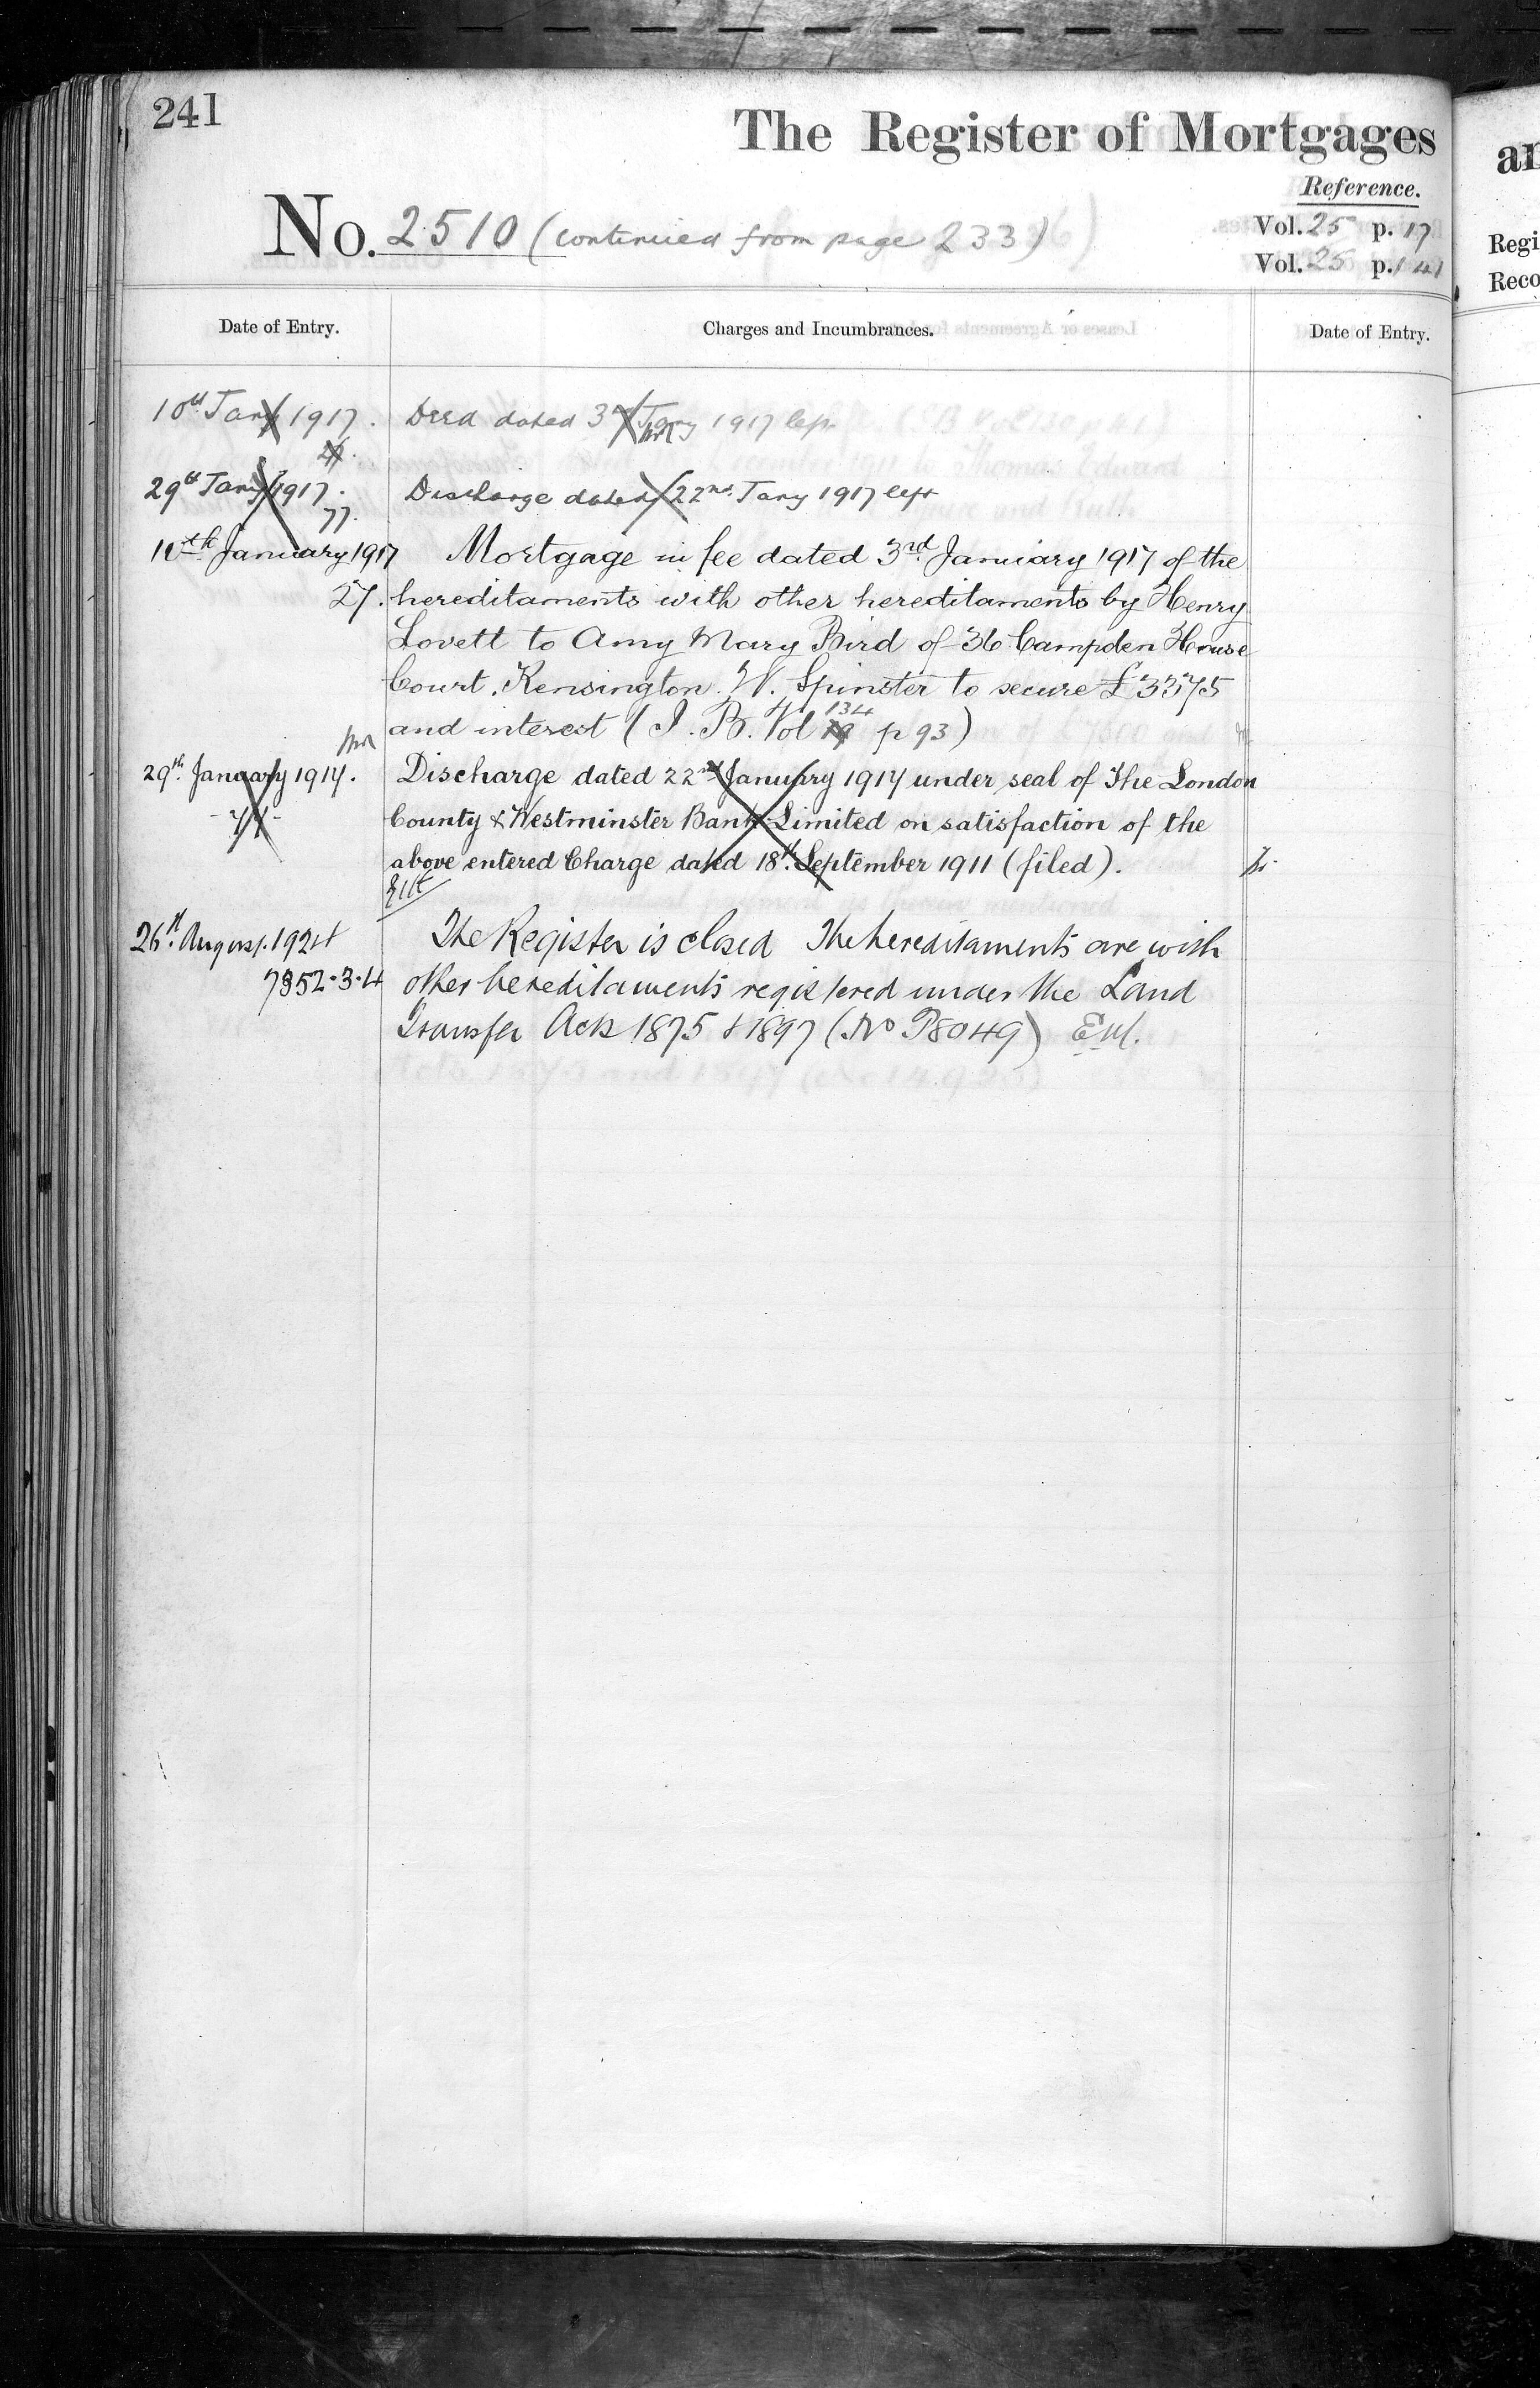 241
The Register of Mortgages
Reference.
No. 2510 (continued from page 233)
Vol. 25 p. 17
Vol. 25 p. 141
Date of Entry. Charges and Incumbrances. Date of Entry.
10th Jany 1917. Deed dated 3rd Jany 1917 left
29th Jany 1917. Discharge dated 22nd Jany 1917 left
77.
10th January 1917 Mortgage in fee dated 3rd January 1917 of the
27. hereditaments with other hereditaments by Henry
Lovett to Amy Mary Bird of 36 Campden House
Court. Kensington. W. Spinster to secure £3375
134
and interest (I. B. Vol 19 p 93)
29th January 1917. Discharge dated 22nd January 1917 under seal of The London
77 County & Westminster Bank Limited on satisfaction of the
above entered Charge dated 18th September 1911 (filed).
26th August. 1924 The Register is closed The hereditaments are with
7352·3·4 other hereditaments registered under the Land
Transfer Acts 1875 & 1897 (No P8049)
an
Regi
Reco